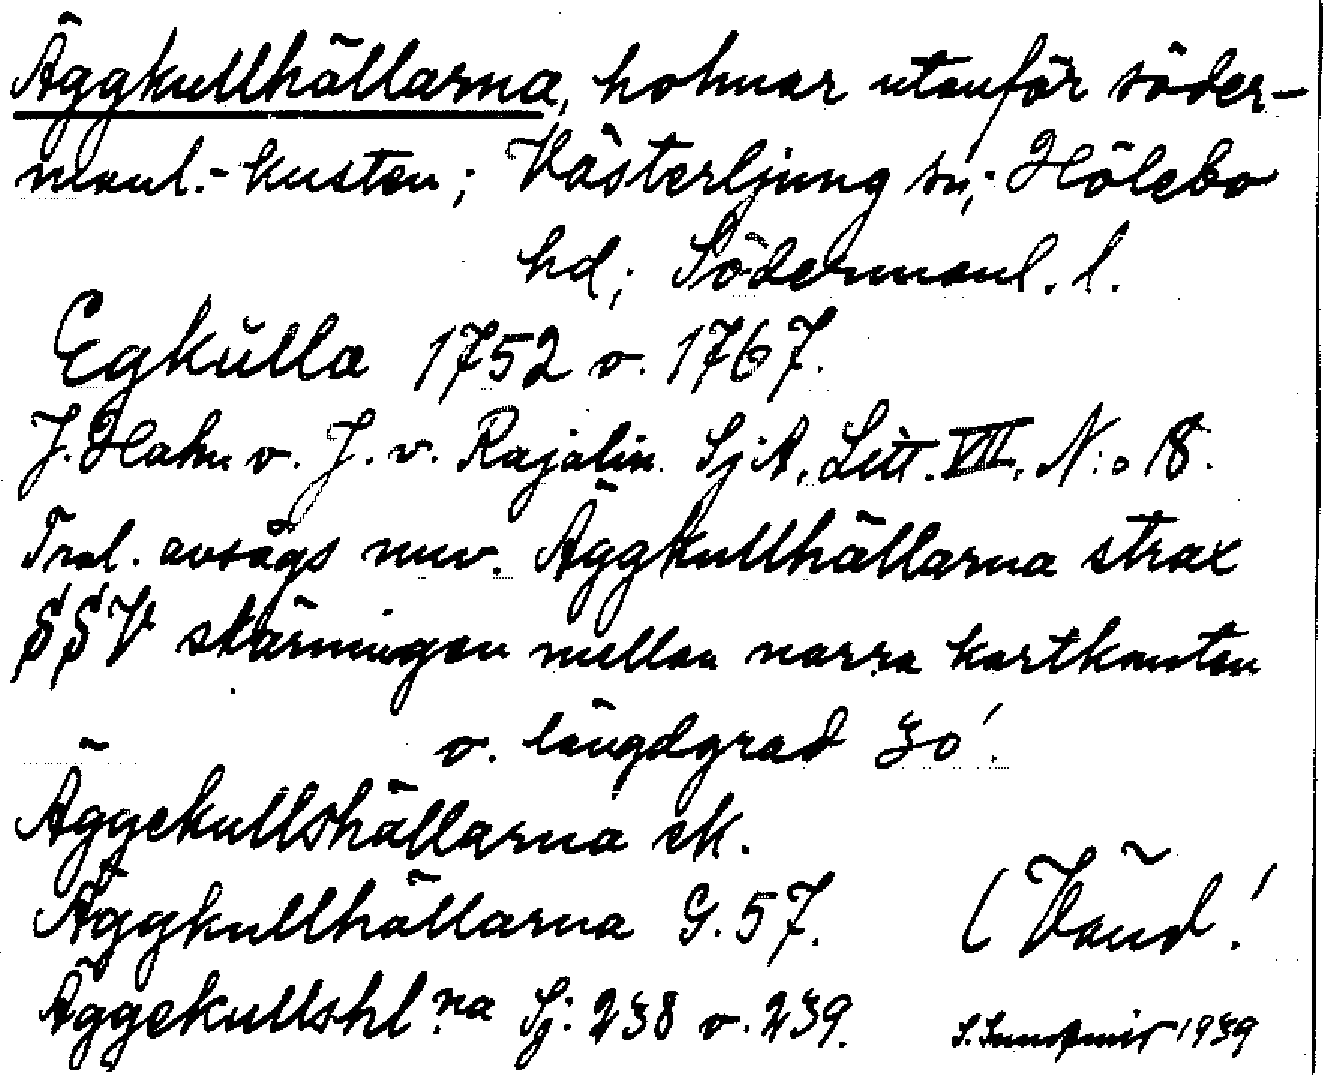 Äggkullhällarna, holmar utanför söder-
manl.-kusten; Västerljung sn; Hölebo
hd; Södermanl. l.
Egkulla 1752 o. 1767.
J. Hahn o. J. v. Rajalin. SjA. Litt. VII. N:o 18.
Trol. avsågs nuv. Äggkullhällarna strax
SSV skärningen mellan norra kartkanten
o. längdgrad 30'.
Äggekullshällarna ek.
Äggkullhällarna G. 57.
(Vänd!
Äggekullshl.na Sj. 238 o. 239.
1939